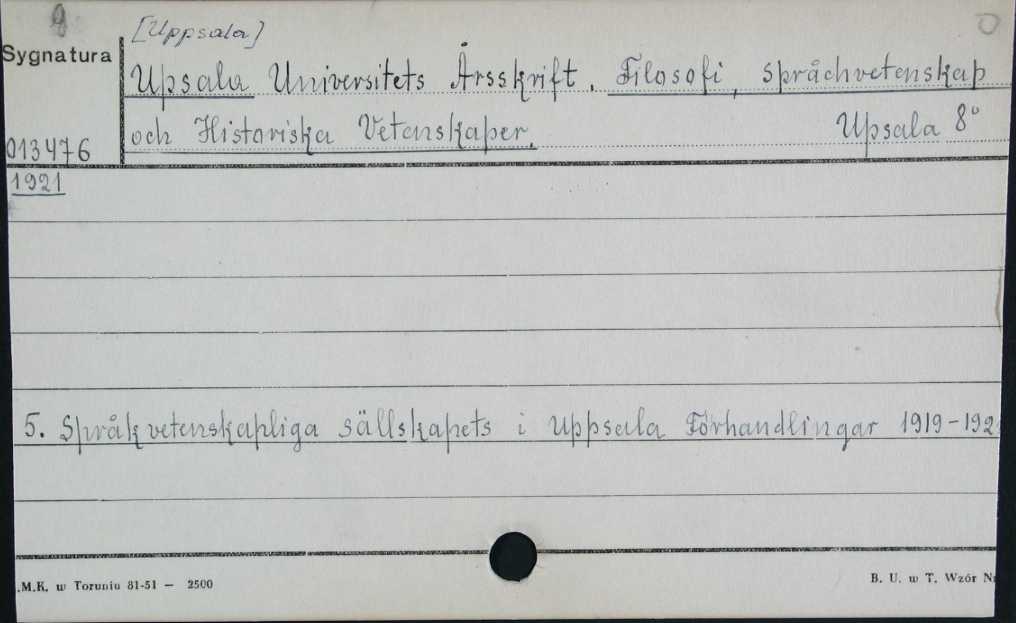 [Uppsala]
Sygnatura
Upsala Universitets Årsskrift. Filosofi, språchvetenskap
och Historiska Vetenskaper. Upsala 8°
013476
1921
5. Språkvetenskapliga sällskapets i Uppsala Förhandlingar 1919-192
.M.K. w Toruniu 81-51 — 2500
B. U. w T. Wzór N